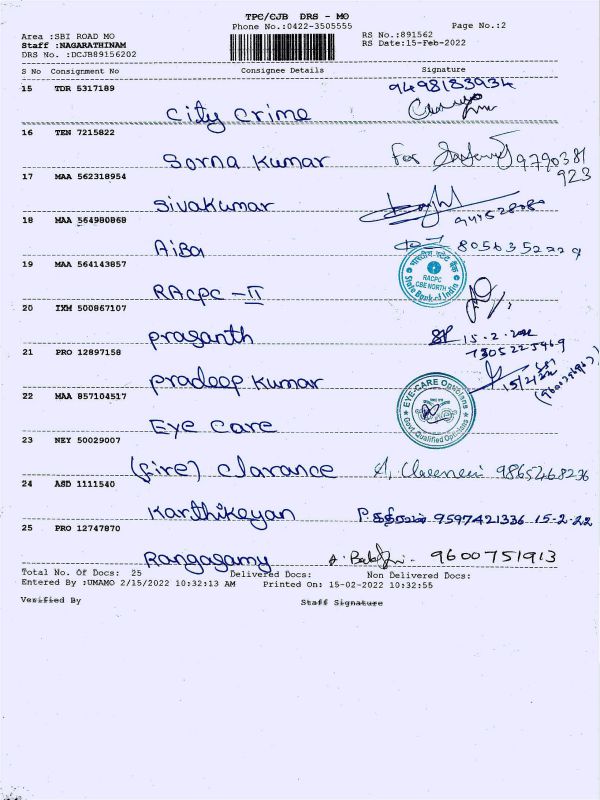 TPC/CJB DRS - MO
Phone No.:0422-3505555
Page No.:2
Area :SBI ROAD MO
RS No.:891562
Staff :NAGARATHINAM
RS Date:15-Feb-2022
DRS No. :DCJB89156202
S No Consignment No Consignee Details Signature
15 TDR 5317189
9498183934
City Crime
16 TEN 7215822
Sorna Kumar For 9790381
923
17 MAA 562318954
Sivakumar
18 MAA 564980868
AiBa 8056352229
19 MAA 564143857
भारतीय स्टेट बैंक
RACPC
CBE NORTH
State Bank of India
RACPC - II
20 IXM 500867107
Prasanth 15-2-222
7305225469
21 PRO 12897158
15/2/22
Pradeep Kumar
22 MAA 857104517
EYE-CARE Opticians
Govt. Qualified Opticians
Eye Care
23 NEY 50029007
(Fire) Clarance 9865268236
24 ASD 1111540
Karthikeyan 9597421336 15-2-22
25 PRO 12747870
Rangasamy 9600751913
Total No. Of Docs: 25 Delivered Docs: Non Delivered Docs:
Entered By :UMAMO 2/15/2022 10:32:13 AM Printed On: 15-02-2022 10:32:55
Verified By Staff Signature